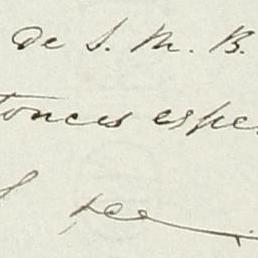 de S. M. B.
tonces espe